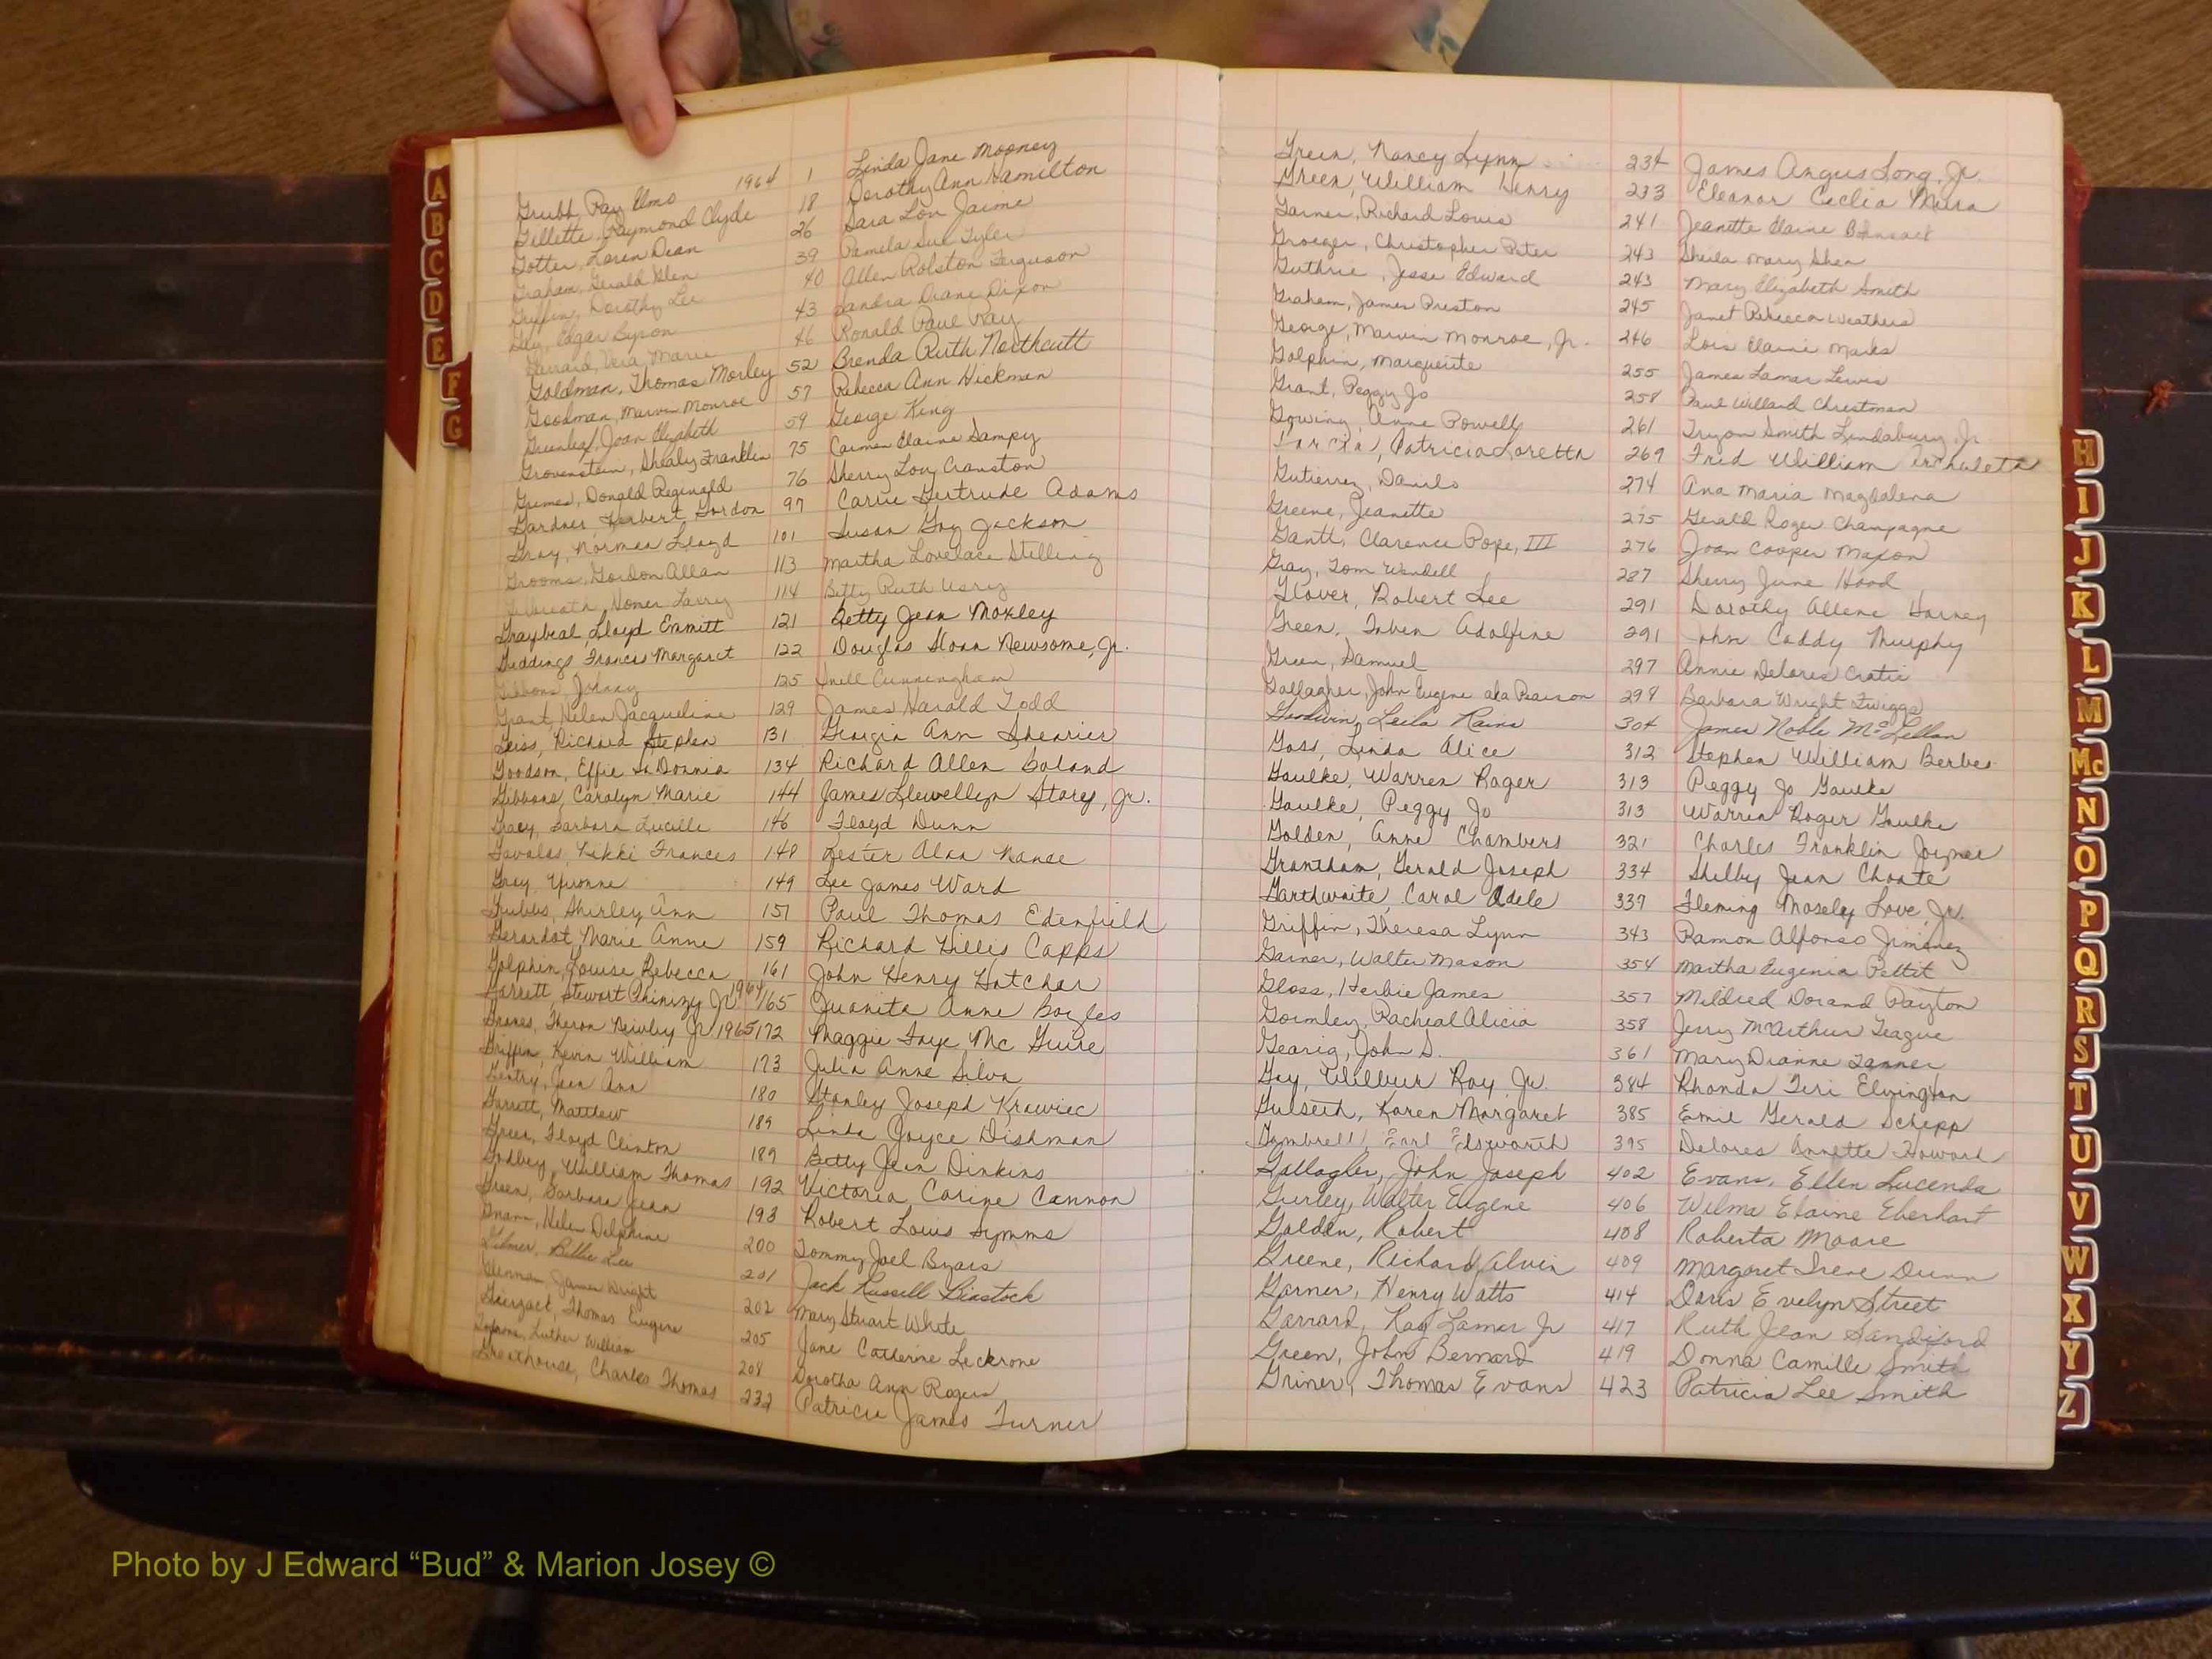 Grubb, Ray Elmo 1964 1 Linda Jane Mooney
Gillette, Raymond Clyde 18 Dorothy Ann Hamilton
Gotter, Loren Dean 26 Sara Lou Jaime
Graham, Gerald Glen 39 Pamela Sue Tyler
Griffin, Dorothy Lee 40 Allen Rolston Ferguson
Gay, Edgar Byron 43 Sandra Diane Dixon
Garrard, Vera Marie 46 Ronald Paul Ray
Goldman, Thomas Morley 52 Brenda Ruth Northcutt
Goodman, Marvin Monroe 57 Rebecca Ann Hickman
Greenleaf, Joan Elizabeth 59 George King
Grovenstein, Shealy Franklin 75 Carmen Elaine Sampy
Grimes, Donald Reginald 76 Sherry Lou Cranston
Gardner, Herbert Gordon 97 Carrie Gertrude Adams
Gray, Norman Lloyd 101 Susan Gay Jackson
Grooms, Gordon Allan 113 Martha Lovelace Stelling
Homer Larry 114 Betty Ruth Usry
Graybeal, Lloyd Emmitt 121 Betty Jean Moxley
Giddings, Francis Margaret 122 Douglas Sloan Newsome, Jr.
Gibbons, Johnny 125 Inell Cunningham
Grant, Helen Jacqueline 129 James Harold Todd
Geiss, Richard Stephen 131 Georgia Ann Shearies
Goodson, Effie La Donnia 134 Richard Allen Boland
Gibbons, Carolyn Marie 144 James Llewellyn Story, Jr.
Gracy, Barbara Lucille 146 Floyd Dunn
Gavalas, Kikki Frances 148 Lester Alan Nance
Grey, Yvonne 149 Lee James Ward
Grubbs, Shirley Ann 157 Paul Thomas Edenfield
Gerardot, Marie Anne 159 Richard Hillis Capps
Golphin, Louise Rebecca 161 John Henry Hatcher
Garrett, Stewart Phinizy Jr 1964 165 Juanita Anne Bayles
Graves, Theron Neivley Jr 1965 172 Maggie Faye Mc Guire
Griffin, Kevin William 173 Julia Anne Silva
Gentry, Jean Ann 180 Stanley Joseph Krawiec
Garrett, Matthew 189 Linda Joyce Dishman
Greer, Floyd Clinton 189 Betty Jean Dinkins
Godbey, William Thomas 192 Victoria Corine Cannon
Green, Barbara Jean 193 Robert Louis Symms
Helen Delphine 200 Tommy Joel Byars
Gilmer, Billie Lee 201 Jack Russell
Glennan, James Wright 202 Mary Stuart White
Thomas Eugene 205 Jane Catherine Leckrone
Luther William 208 Dorotha Ann Rogers
Greathouse, Charles Thomas 232 Patricia James Turner
Green, Nancy Lynn 234 James Angus Long, Jr.
Green, William Henry 233 Eleanor Cecilia Mura
Garner, Richard Louis 241 Jeanette Elaine
Groeger, Christopher Peter 243 Sheila Mary Shea
Guthrie, Jesse Edward 243 Mary Elizabeth Smith
Graham, James Preston 245 Janet Rebecca Weathers
George, Marvin Monroe, Jr. 246 Lois Elaine Marks
Golphin, Marguerite 255 James Lamar Lewis
Grant, Peggy Jo 258 Paul Willard Christman
Gowing, Anne Powell 261 Tryon Smith Lindabury, Jr
Garcia, Patricia Loretta 269 Fred William Archuleta
Gutierrez, Danilo 274 Ana Maria Magdalena
Greene, Jeanette 275 Gerald Roger Champagne
Gantt, Clarence Pope, III 276 Joan Cooper Maxon
Gray, Tom Wendell 287 Sherry June Hood
Glover, Robert Lee 291 Dorothy Allene Harvey
Green, Adolfine 291 John Caddy Murphy
Green, Samuel 297 Annie Delores Cratic
Gallagher, John Eugene aka Pearson 298 Barbara Wright Twiggs
Goodwin, Leila Rains 304 James Noble McLellan
Goss, Linda Alice 312 Stephen William Berber
Gaulke, Warren Roger 313 Peggy Jo Gaulke
Gaulke, Peggy Jo 313 Warren Roger Gaulke
Golden, Anne Chambers 321 Charles Franklin Joyner
Grantham, Gerald Joseph 334 Shelby Jean Choate
Garthwaite, Carol Adele 337 Fleming Mosely Love, Jr.
Griffin, Theresa Lynn 343 Ramon Alfonso Jimenez
Garner, Walter Mason 354 Martha Eugenia Pettit
Gloss, Herbie James 357 Mildred Dorand Payton
Gormley, Racheal Alicia 358 Jerry McArthur Teague
Gearig, John D. 361 Mary Dianne Tanner
Gay, Wilbur Roy, Jr. 384 Rhonda Teri Elvington
Gulseth, Karen Margaret 385 Emil Gerald Schepp
Gumbrell, Earl Edsworth 395 Delores Annette Howard
Gallagher, John Joseph 402 Evans, Ellen Lucenda
Gurley, Walter Eugene 406 Wilma Elaine Eberhart
Golden, Robert 408 Roberta Moore
Greene, Richard Alvin 409 Margaret Irene Dunn
Garner, Henry Watts 414 Doris Evelyn Street
Garrard, Ray Lamar Jr 417 Ruth Jean Sandiford
Green, John Bernard 419 Donna Camille Smith
Griner, Thomas Evans 423 Patricia Lee Smith
A
B
C
D
E
F
G
H
I
J
K
L
M
Mc
N
O
P
Q
R
S
T
U
V
W
X
Y
Z
Photo by J Edward “Bud” & Marion Josey ©